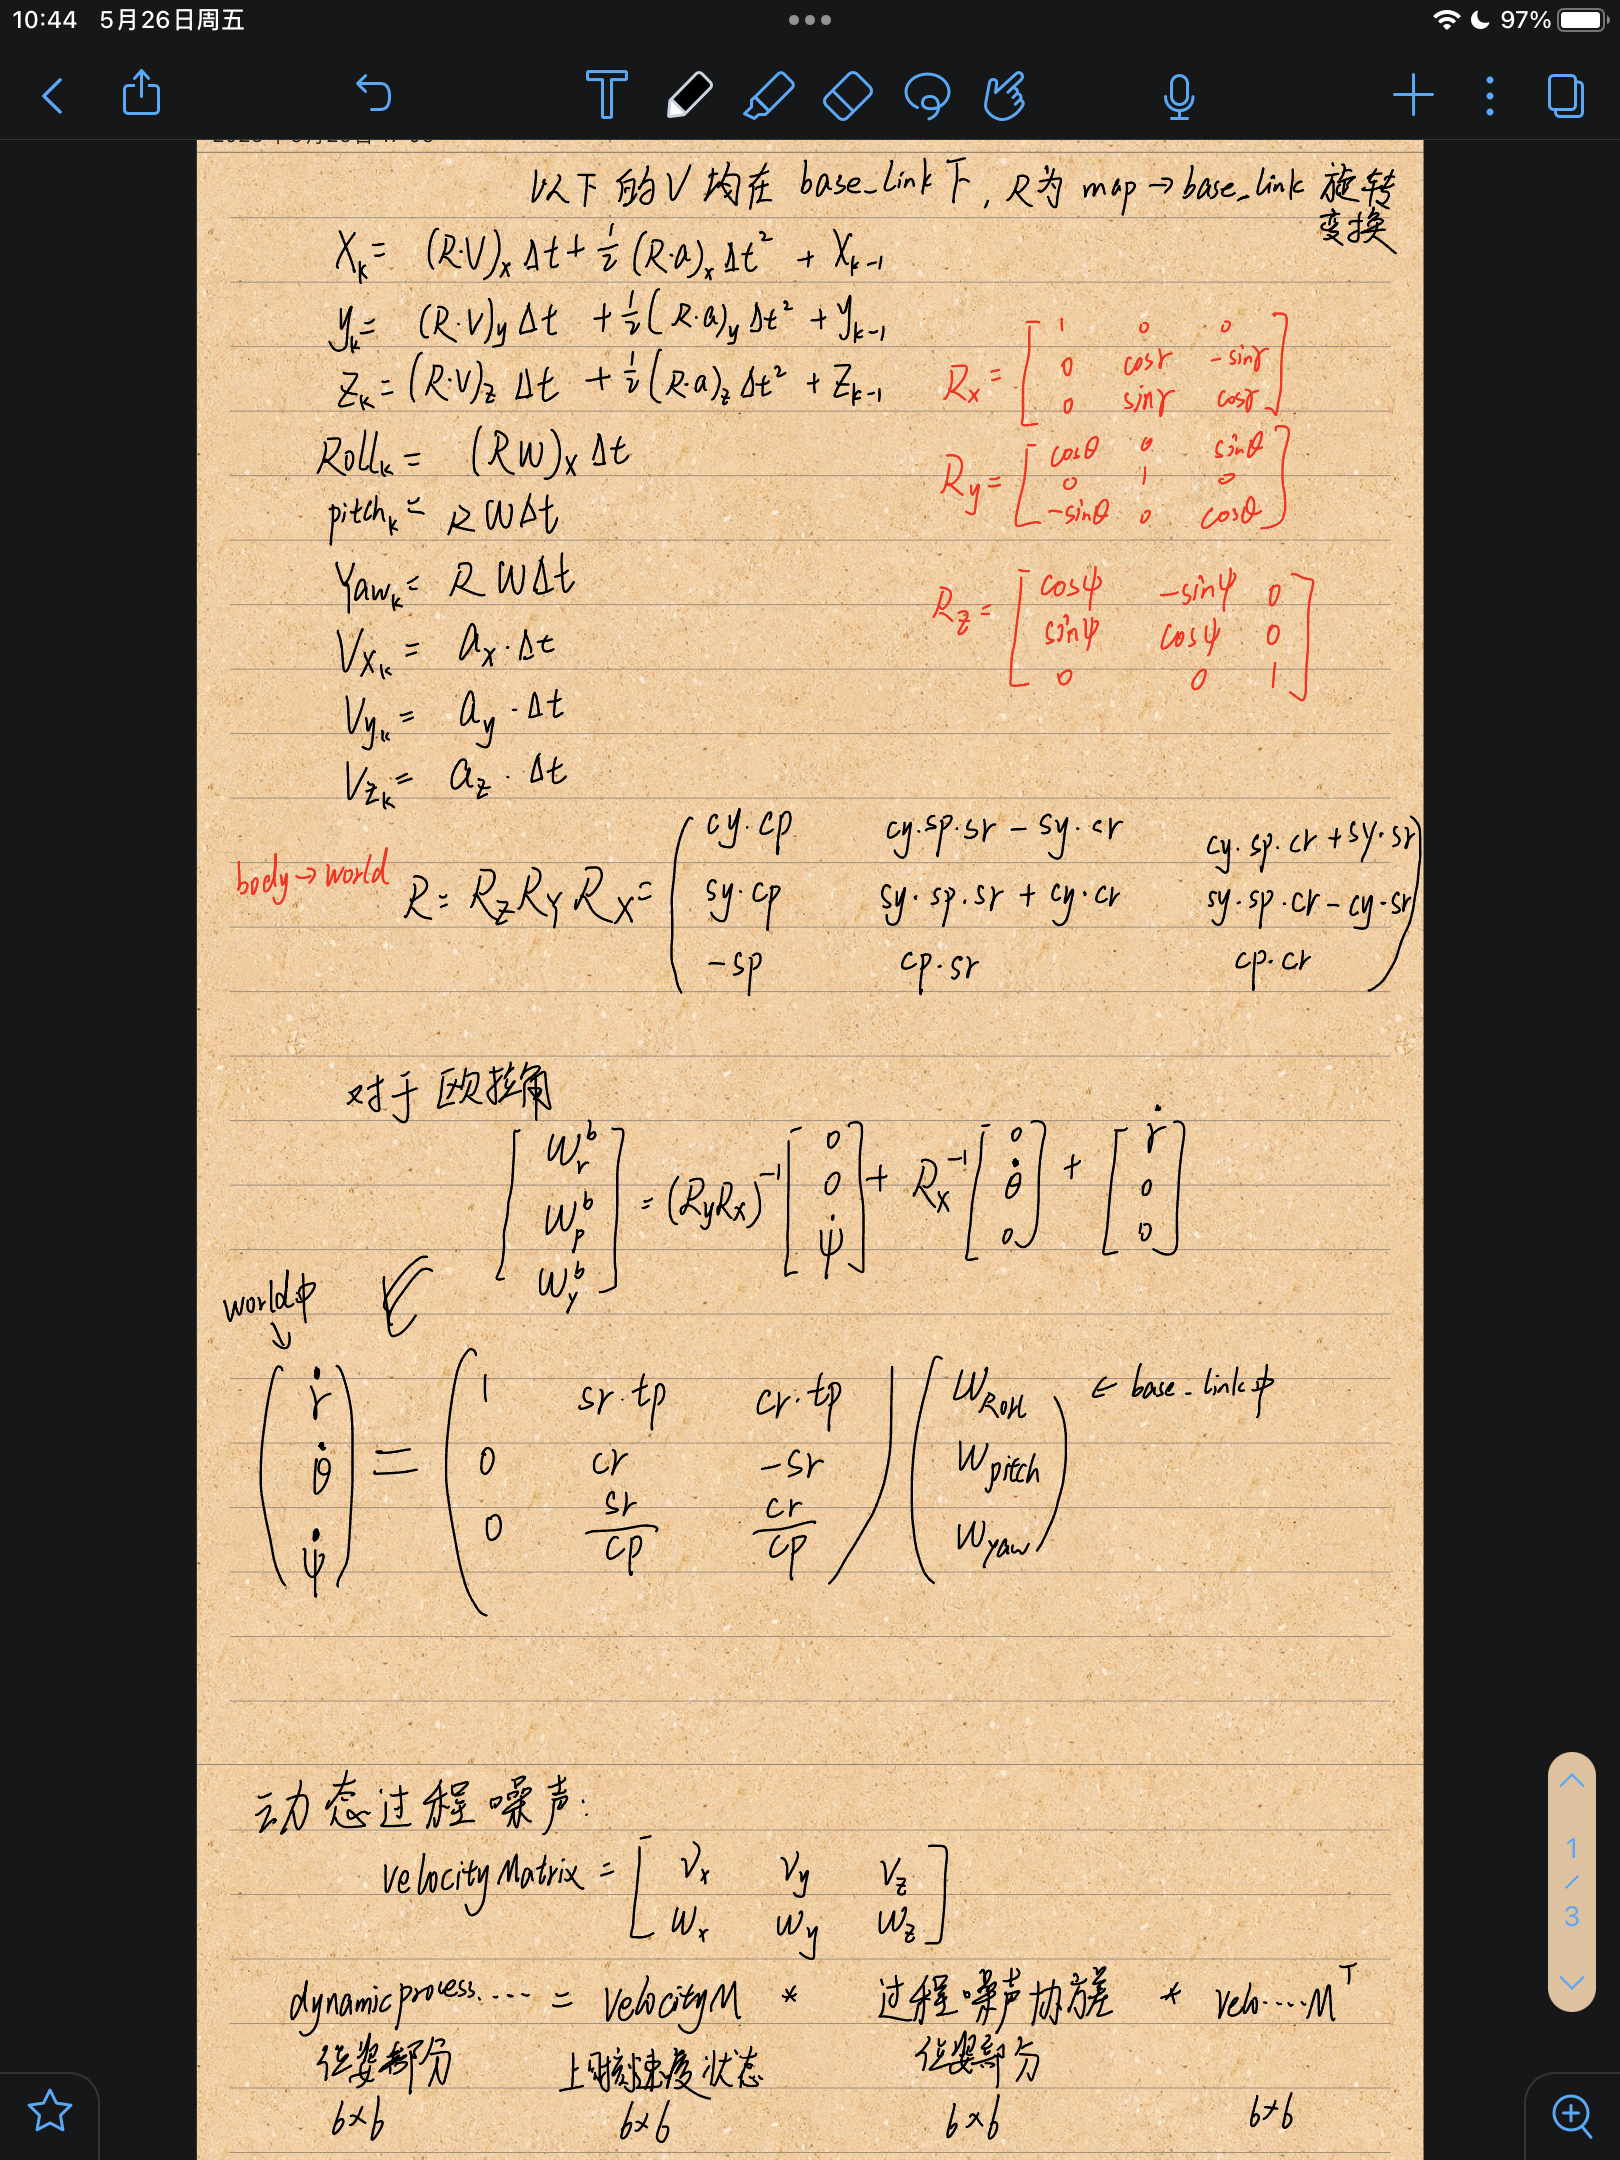 10:44 5月26日周五 97%
以下的V均在 base_link下, R为 map→base_link 旋转
变换
X_k = (R·V)_x Δt + 1/2 (R·a)_x Δt² + X_k-1
y_k = (R·V)_y Δt + 1/2 (R·a)_y Δt² + y_k-1
Z_k = (R·V)_z Δt + 1/2 (R·a)_z Δt² + Z_k-1
Roll_k = (RW)_x Δt
pitch_k = RWΔt
Yaw_k = RWΔt
V_x_k = a_x·Δt
V_y_k = a_y·Δt
V_z_k = a_z·Δt
R_x = [ 1 0 0
0 cosr -sinr
0 sinr cosr ]
R_y = [ cosθ 0 sinθ
0 1 0
-sinθ 0 cosθ ]
R_z = [ cosψ -sinψ 0
sinψ cosψ 0
0 0 1 ]
cy·cp cy·sp·sr - sy·cr cy·sp·cr + sy·sr
body→world R = R_Z R_Y R_X = ( sy·cp sy·sp·sr + cy·cr sy·sp·cr - cy·sr )
-sp cp·sr cp·cr
对于欧拉角
[ W_r^b
W_p^b
W_y^b ] = (RyRx)^-1 [ 0 0 ψ̇ ] + R_x^-1 [ 0 θ̇ 0 ] + [ ṙ 0 0 ]
world中
↓
ṙ 1 sr·tp cr·tp W_Roll ← base_link中
θ̇ = 0 cr -sr W_pitch
ψ̇ 0 sr/cp cr/cp W_yaw
动态过程噪声:
velocityMatrix = [ V_x V_y V_z
W_x W_y W_z ]
dynamicprocess.···· = velocityM * 过程噪声协方差 * velo·····M^T
位姿部分 上时刻速度状态 位姿部分
6×6 6×6 6×6 6×6
1
/
3